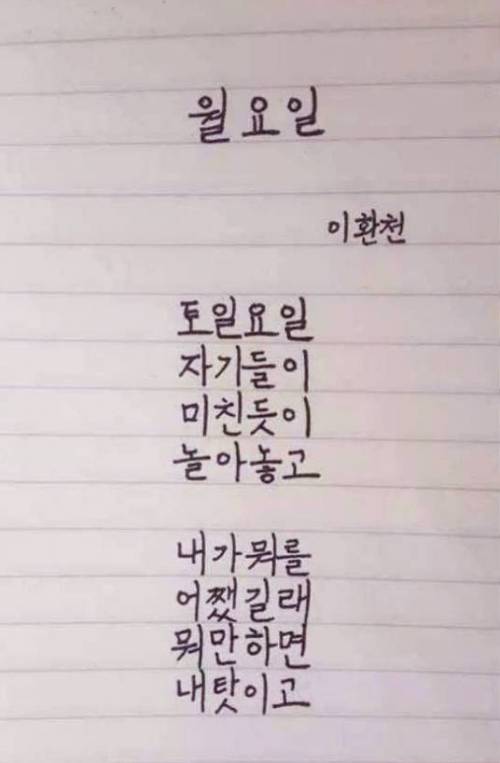 월요일
이환천
토일요일
자기들이
미친듯이
놀아놓고
내가뭐를
어쨌길래
뭐만하면
내탓이고